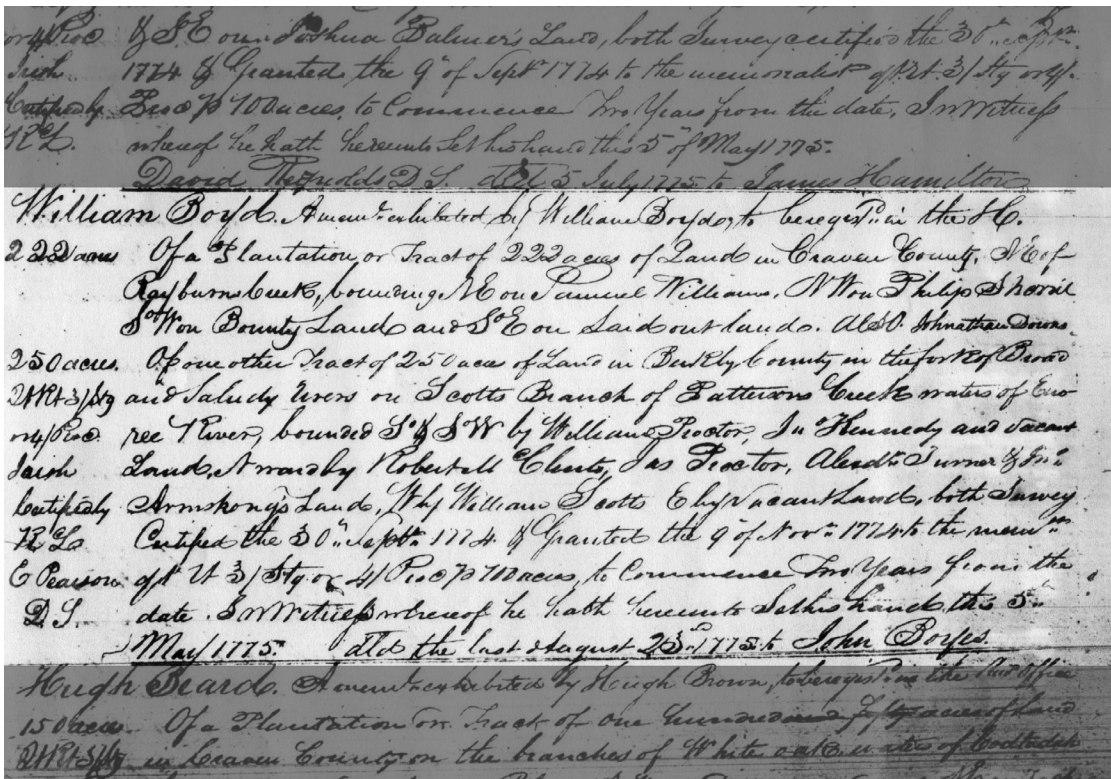 or 4/ Proc & S.E on Joshua Balmer's Land, both Survey certified the 30th
Irish 1774 & Granted the 9th of Septr 1774 to the memorialist Qt Rt 3/ Stg or 4/
Certified by Proc P 100 acres, to Commence Two Years from the date, In Witness
R L. whereof he hath hereunto Set his hand this 5th of May 1775.
David D S. dld 5 July 1775 to James Hamilton
William Boyd. A meml exhibited by William Boyd to be regist'd in the
222 acres Of a Plantation or Tract of 222 acres of Land in Craven County, N E of
Rayburns Creek, bounding N E on Samuel Williams, N W on Philip Sherril
So W on Bounty Land and So E on Laid out land. Also. Johnathan Downs
250 acres. Of one other Tract of 250 acs of Land in Berkly County in the fork of Broad
Qt Rt 3/ Stg and Saludy rivers on Scotts Branch of Pattersons Creek waters of Eno
or 4/ Proc. ree River, bounded So & S W by William Proctor, Jno Kennedy and vacant
Irish Land, N ward by Robert Jas Proctor, Alexdr Turner & Jno
Certified by Armstrong's Land, W by William Scotts E by Vacant Land, both Survey
R L Certified the 30th Septr 1774 & Granted the 9th of Novr 1774 to the memst
E Pearson qt Rt 3/ Stg or 4/ Proc P 100 acres, to Commence Two Years from the
D. S. date. In Witness whereof he hath hereunto Set his hand this 5th
May 1775. dld the last August 23d 1775 to John Boyes
Hugh Beard. A meml exhibited by Hugh Brown, to be regist'd in the Aud Office
150 acres. Of a Plantation or Tract of one hundred and fifty acres of Land
Qt Rt 3/ Stg in Craven County on the branches of White oak waters of